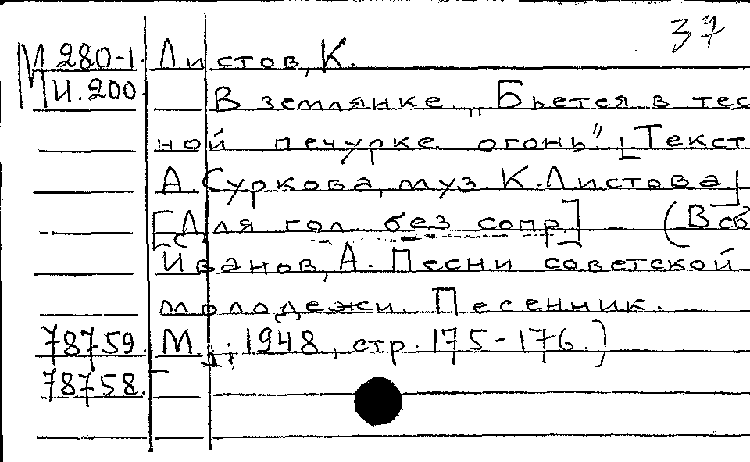 37
М 280-1 Листов, К.
М И.200 В землянке „Бьется в тес
ной печурке огонь" [Текст
А. Суркова, муз К. Листова]
[Для гол без сопр] (В сб
Иванов, А. Песни советской
молодежи. Песенник.
78759 М., 1948, стр. 175-176.)
78758